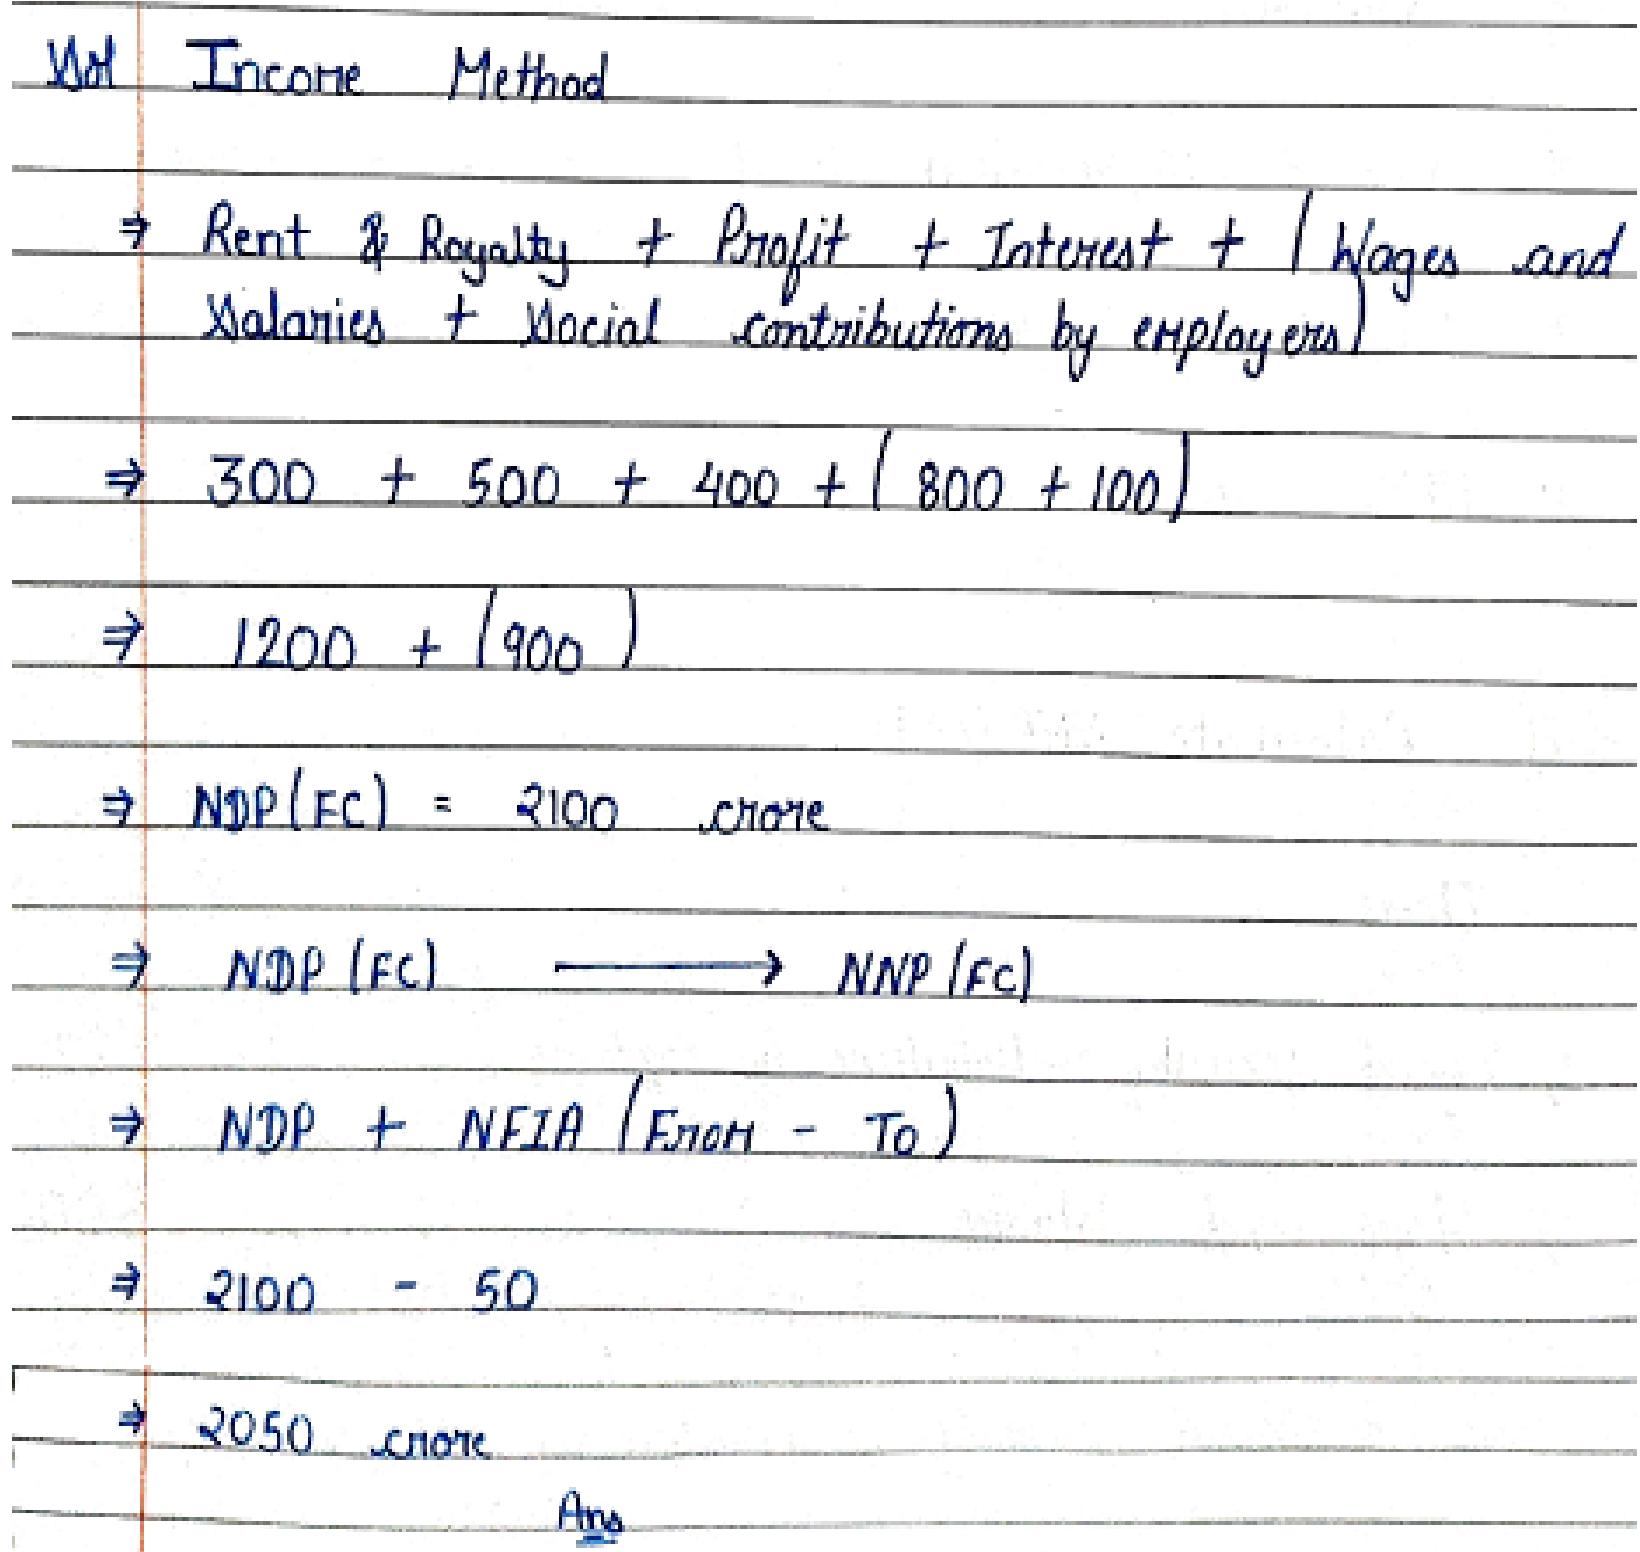 Sol Income Method
⇒ Rent & Royalty + Profit + Interest + (Wages and
Salaries + Social contributions by employers)
⇒ 300 + 500 + 400 + (800 + 100)
⇒ 1200 + (900)
⇒ NDP(FC) = 2100 crore
⇒ NDP (FC) ⟶ NNP (FC)
⇒ NDP + NFIA (From - To)
⇒ 2100 - 50
⇒ 2050 crore
Ans